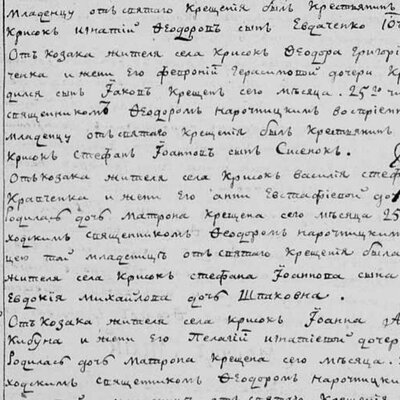 Младенцу отъ святаго Крещенія былъ Крестьянин
Крисокъ Игнатій Ѳеодоровъ сынъ Евдаченко
Отъ Козака жителя села Крисокъ Ѳеодора Григорі
ченка и жени Его Февроніи Герасимовой дочери
дился сынъ Іаковъ Крещенъ сего мѣсяца. 25го
священникомъ Ѳеодоромъ Нарочницкимъ воспріем
младенцу отъ святаго Крещенія былъ Крестьянин
Крисокъ Стефанъ Іоанновъ сынъ Сисенокъ.
Отъ Козака жителя села Крисокъ Василія Стеф
Кравченка и жени Его Анни Евстафіевой до
родилась дочь Матрона Крещена сего мѣсяца 25
ходскимъ священникомъ Ѳеодоромъ Нарочницким
цею той младеницѣ отъ святаго Крещенія была
жителя села Крисокъ Стефана Іоаннова сына
Евдокія Михайлова дочь Шпаковна.
Отъ Козака жителя села Крисокъ Іоанна
Кибуна и жени Его Пелагіи Игнатіевой дочер
родилась дочь Матрона Крещена сего мѣсяца.
ходскимъ священникомъ Ѳеодоромъ Нарочницки
отъ святаго Крещенія